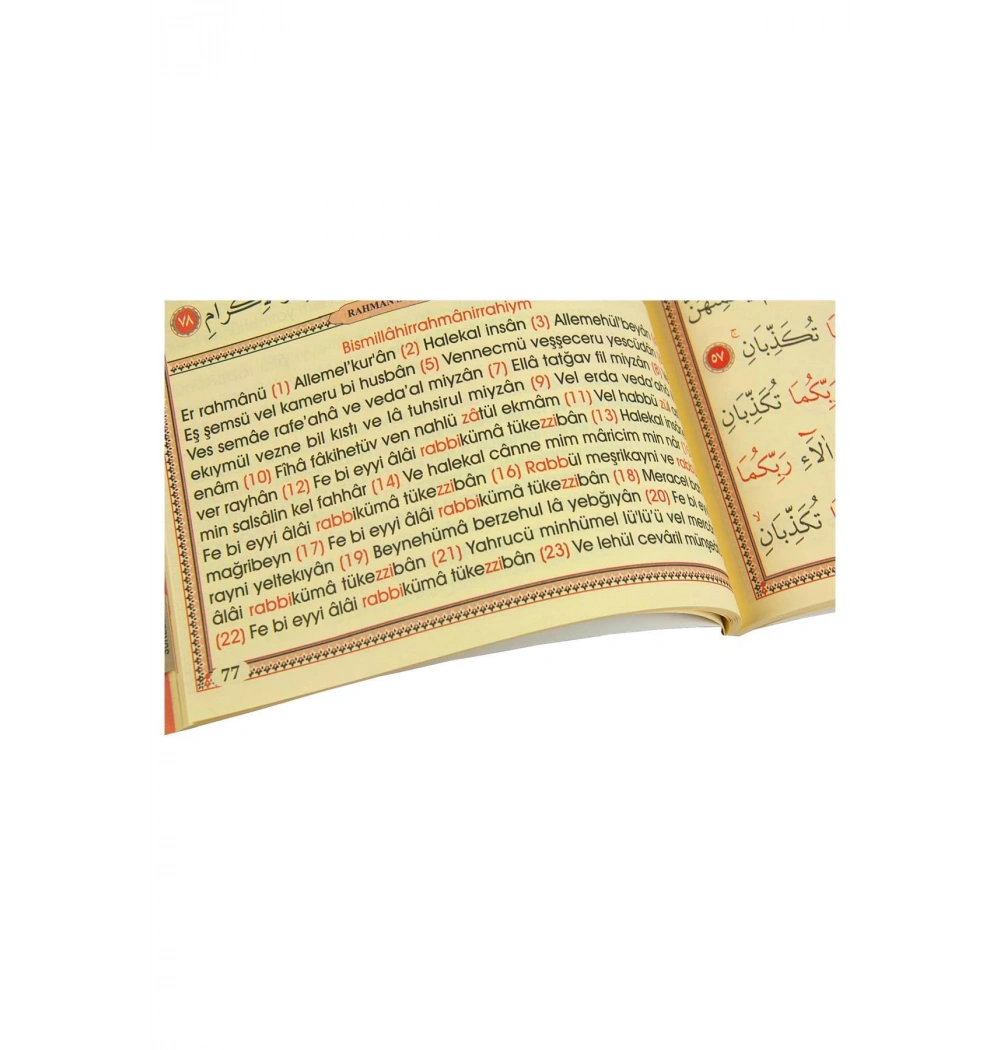 ٧٨
RAHMAN
Bismillâhirrahmânirrahiym
Er rahmânü (1) Allemel'kur'ân (2) Halekal insân (3) Allemehül'beyân
Eş şemsü vel kameru bi husbân (5) Vennecmü veşşeceru yescüdân
Ves semâe rafe'ahâ ve veda'al miyzân (7) Ellâ tatğav fil miyzân (8)
ekıymül vezne bil kıstı ve lâ tuhsirul miyzân (9) Vel erda veda'ahâ
enâm (10) Fîhâ fâkihetüv ven nahlü zâtül ekmâm (11) Vel habbü zül
ver rayhân (12) Fe bi eyyi âlâi rabbikümâ tükezzibân (13) Halekal insân
min salsâlin kel fahhâr (14) Ve halekal cânne mim mâricim min nâr
Fe bi eyyi âlâi rabbikümâ tükezzibân (16) Rabbül meşrikayni ve
mağribeyn (17) Fe bi eyyi âlâi rabbikümâ tükezzibân (18) Meracel
rayni yeltekıyân (19) Beynehümâ berzehul lâ yebğıyân (20) Fe bi
âlâi rabbikümâ tükezzibân (21) Yahrucü minhümel lü'lü'ü vel
(22) Fe bi eyyi âlâi rabbikümâ tükezzibân (23) Ve lehül cevâril
77
تُكَذِّبَانِ ٥٧
رَبِّكُمَا تُكَذِّبَانِ
اٰلَاءِ رَبِّكُمَا
تُكَذِّبَانِ